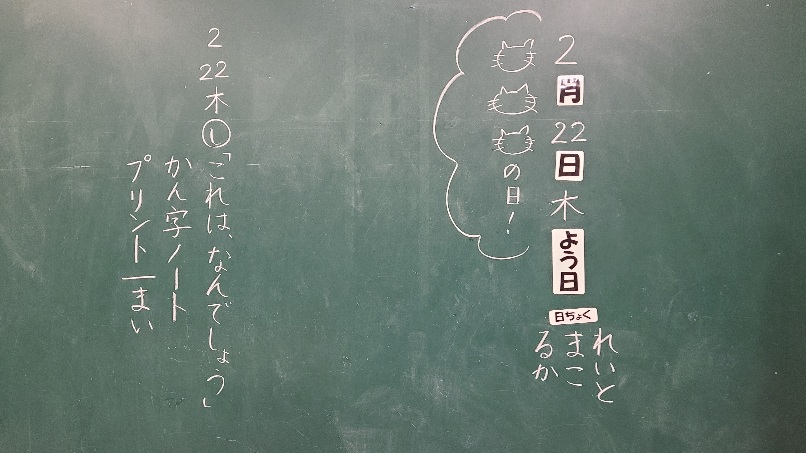 2月22日木よう日
日ちょく
れいと
まこ
るか
の日!
2
22
木
①「これは、なんでしょう」
かん字ノート
プリント一まい